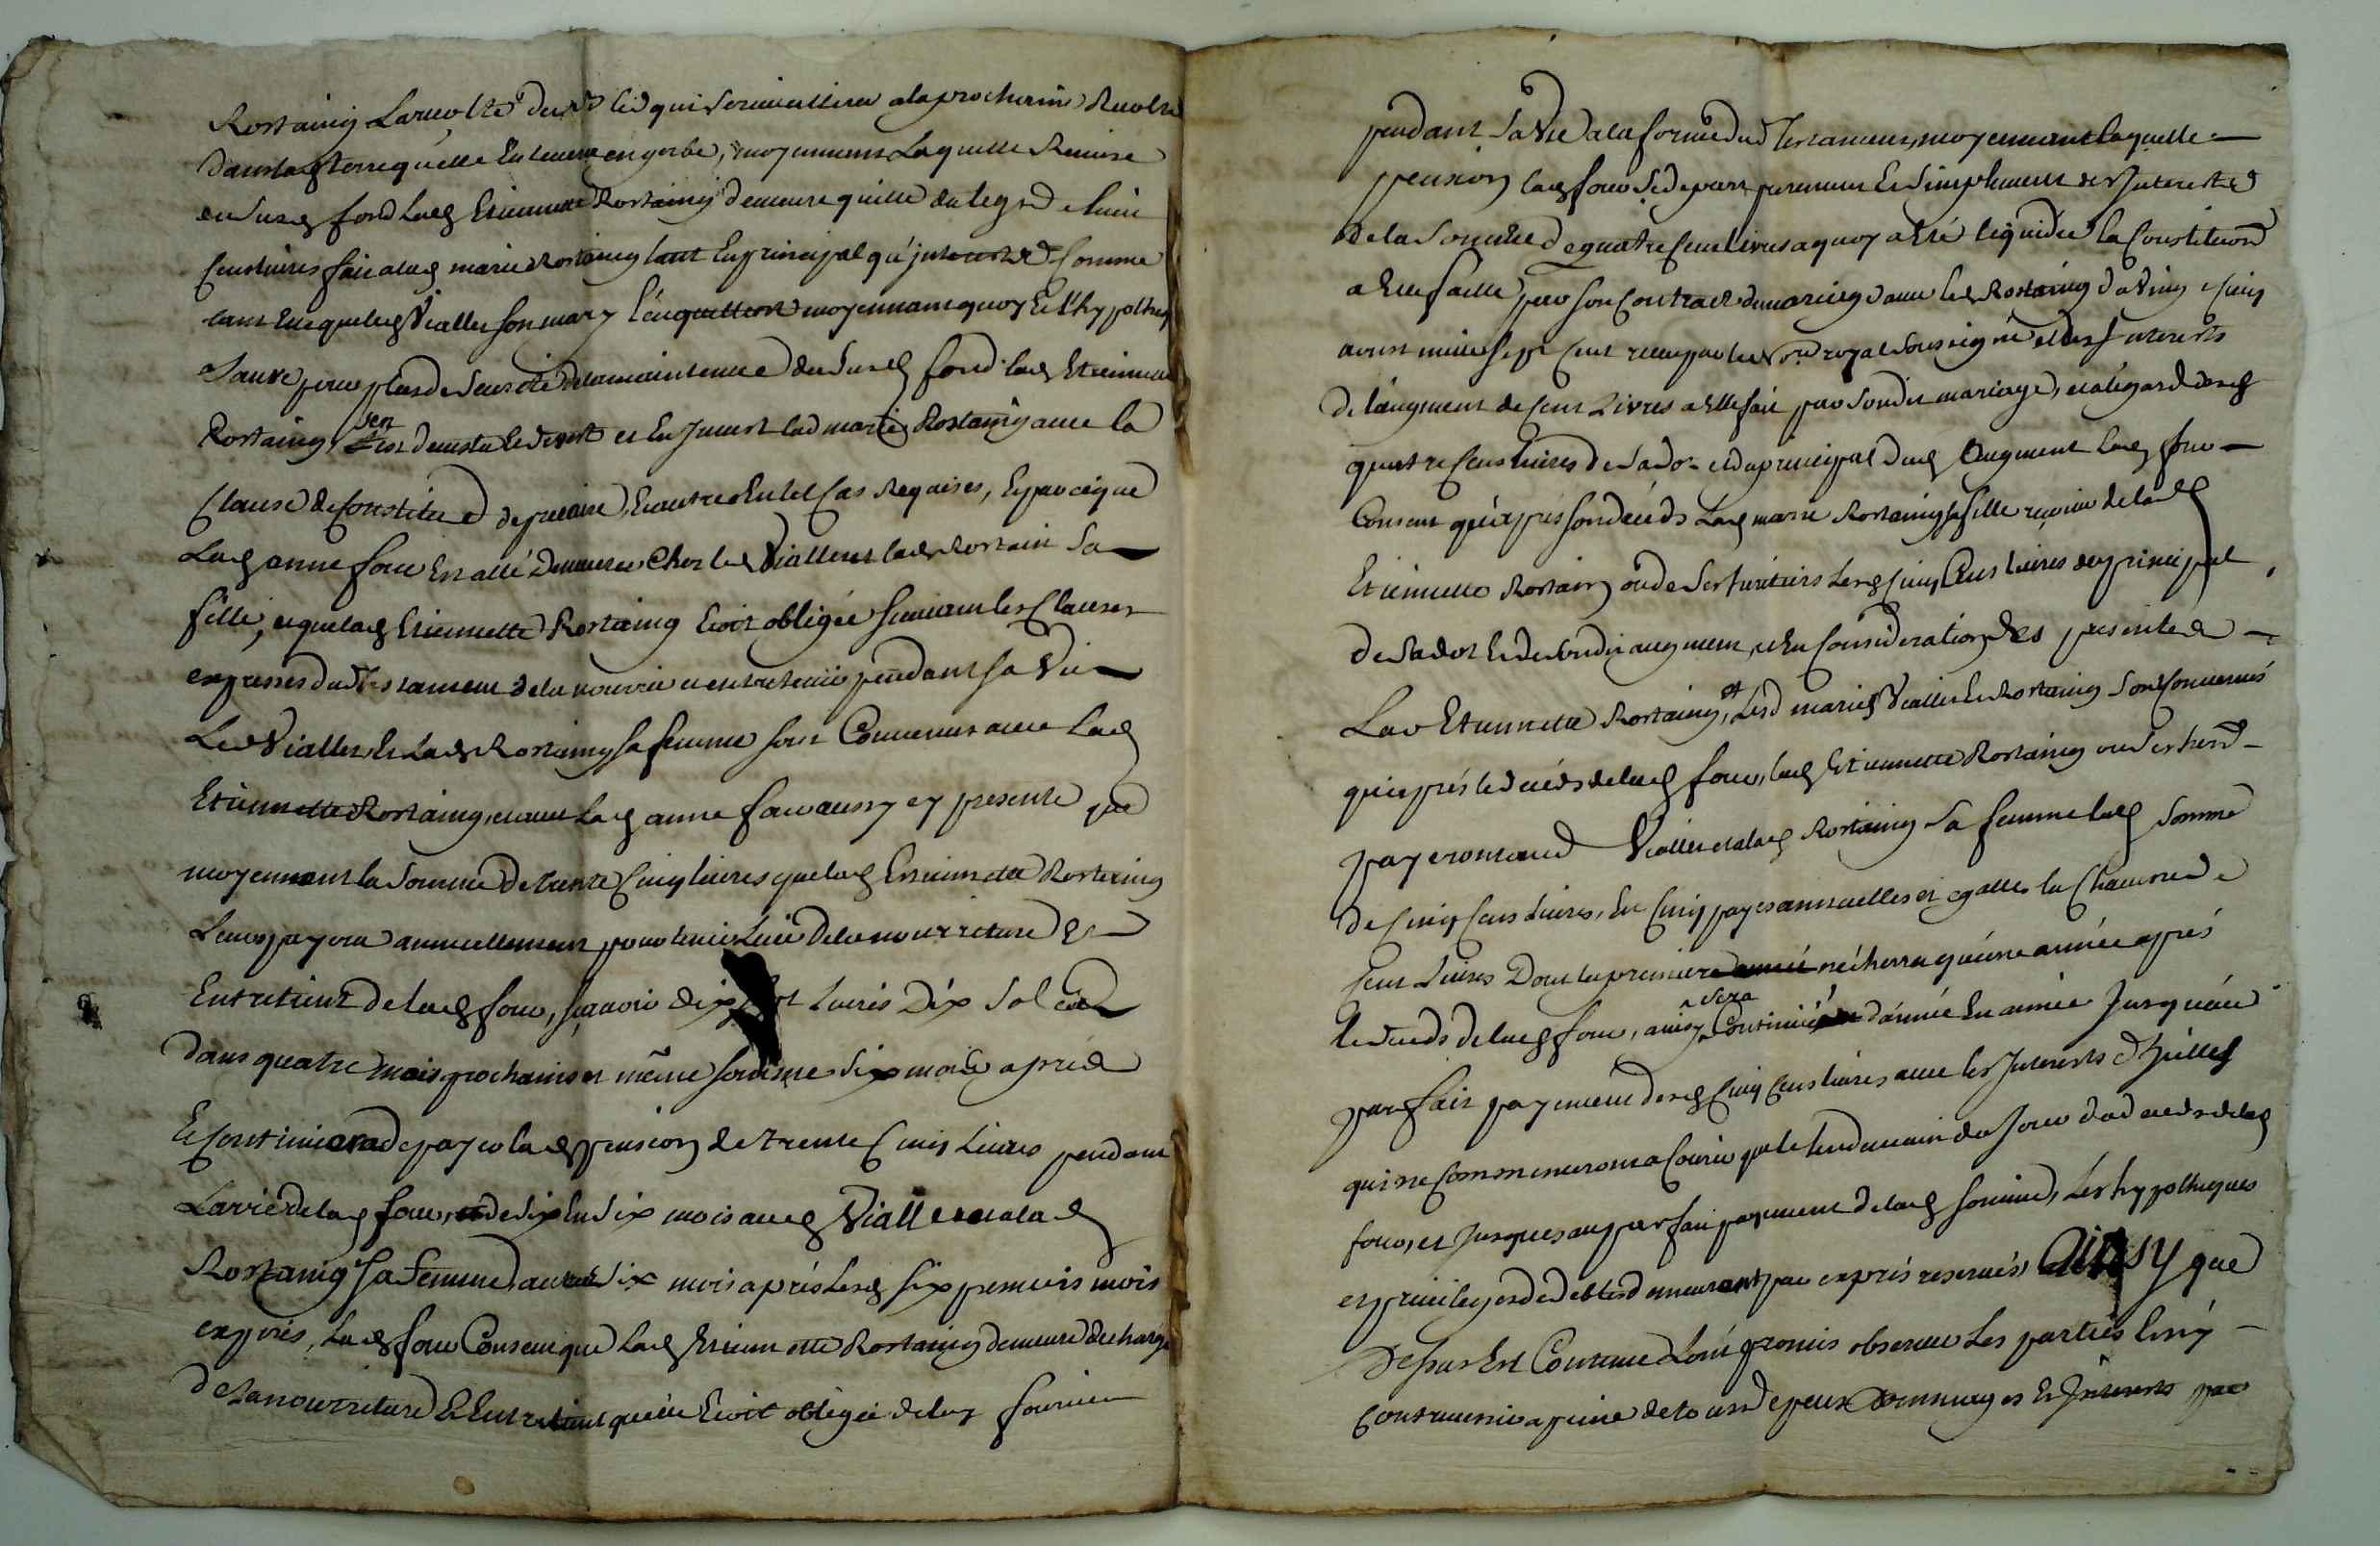 Rostaing La recolte du bled qui se recueillira a la prochaine Recolte
dans la terre qu'elle Enlevera en gerbe, moyennant Laquelle Remise
du susd fond Lad Etiennette Rostaing demeure quitte du legs de huit
Cent livres fait a lad marie Rostaing tant En principal qu'interests Comme
tant Elle que led Viallet son mary l'en quittent moyennant quoy Et l'hypotheq
Sauve pour plus de seureté de la maintenue du susd fond lad Etiennette
Rostaing s'en est demise devest et En Invest lad marie Rostaing avec la
Clause de Constitut de precaire, Et autre En tel Cas Requises, Et parceque
Lad anne four Est allé Demeurer Chez led Viallet et lad Rostain Sa
fille, et que lad Etiennette Rostaing Etoit obligée suivant les Clauses
expresses dud Testament de la nourrir et entretenir pendant sa Vie
Led Viallet Et Lad Rostaing sa femme sont Convenus avec Lad
Etiennette Rostaing, et avec Lad anne four aussy cy presente que
moyennant la Somme de trente Cinq livres que lad Etiennette Rostaing
Leur payera annuellement pour tenir Lieu de la nourriture Et
Entretient de lad four, sçavoir dix sept Livres Dix Sol
dans quatre mois prochains et même somme six mois après
Et Continuera de payer lad pension de trente Cinq Livres pendant
La vie de lad four, de six En six mois aud Viallet et a lad
Rostaing sa femme, six mois après Lesd six premiers mois
expirés, Lad four Consent que Lad Etiennette Rostaing demeure decharge
de sa nourriture Et Entretient qu'elle Etoit obligée de luy fournir
pendant sa Vie a la forme dud Testament, moyennant laquelle
pension lad four se depart purement Et simplement des Interests
de la Somme de quatre Cent livres a quoy a été liquidée la Constitution
a Elle faitte par son Contract de mariage avec led Rostaing du Vingt Cinq
aoust mille sept Cent receu par led Nore royal soussigné et des Interests
de l'augment de Cent Livres a Elle fait par son dit mariage, et a l'égard desd
quatre Cent livres de sa dot et du principal dud Augment Lad four
Consent qu'après son décéds Lad marie Rostaing sa fille reçoive de lad
Etiennette Rostaing ou de ses heritiers Lesd Cinq Cent livres du principal
de sa dot Et de son dit augment, et En Considération des presentes
Lad Etiennette Rostaing, et Lesd mariés Viallet Et Rostaing sont Convenus
qu'après le décéds de lad four, lad Etiennette Rostaing ou ses hers
payeront aud Viallet et a lad Rostaing Sa femme lad Somme
de Cinq Cent Livres, En Cinq payes annuelles et egalles la Chacune de
Cent Livres Dont la premiere n'écherra qu'une année après
le décéds de lad four, ainsy sera Continué d'année En année Jusqu'au
parfait payement desd Cinq Cent livres avec les Interests d'Icelles
qui ne Commenceront a Courir que le lendemain du Jour du décéds de lad
four, et Jusques au parfait payement de lad somme, Les hypotheques
et privileges de debtes demeurant par exprés reservés, Ainsy que
Dessus Est Contenu L'ont promis observer Les parties sans y
Contrevenir a peine de tous depens Dommages Et Interests par